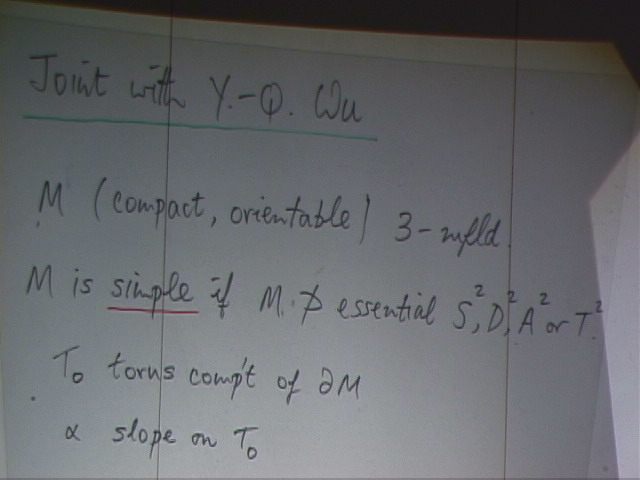 Joint with Y.-Q. Wu
M (compact, orientable) 3-mfld.
M is simple if M ⊅ essential S², D², A² or T².
T₀ torus comp't of ∂M
α slope on T₀